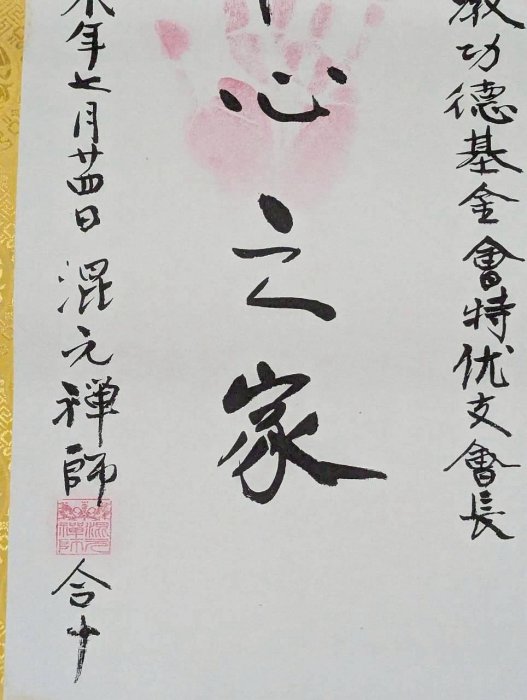 教功德基金會特优支會長
心之家
未年七月廿四日 混元禪師
混元禪師
合十